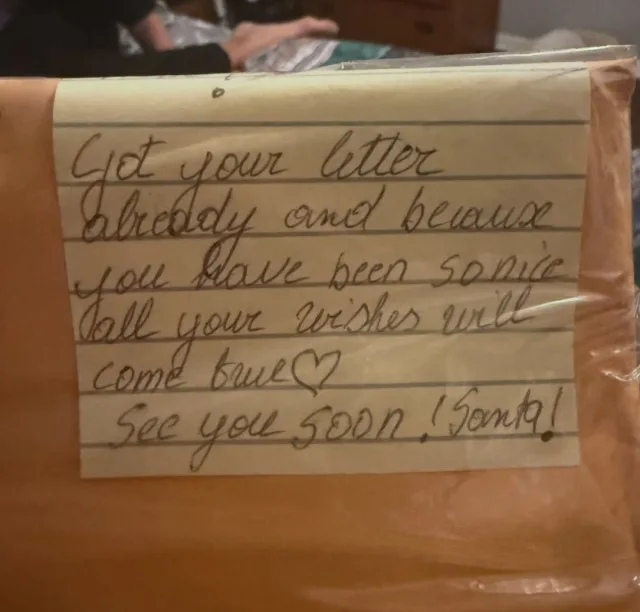 Got your letter
already and because
you have been so nice
all your wishes will
come true♡
See you soon! Santa!